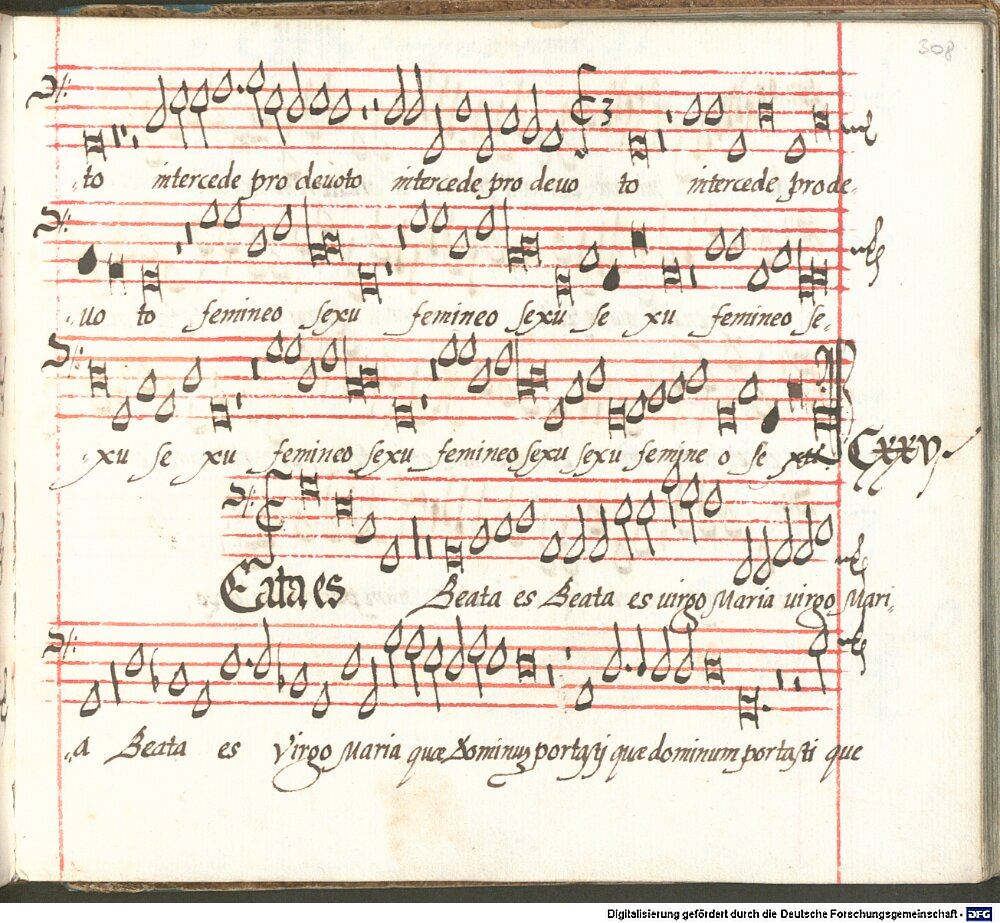 308
C3
..to intercede pro devoto intercede pro devo to intercede pro de..
..vo to femineo sexu femineo sexu se xu femineo se..
..xu se xu femineo sexu femineo sexu sexu femine o se xu
CXXV
Eata es Beata es Beata es virgo Maria virgo Mari..
..a Beata es Virgo Maria quæ Dominum portasti quæ dominum portasti que
Digitalisierung gefördert durch die Deutsche Forschungsgemeinschaft - DFG